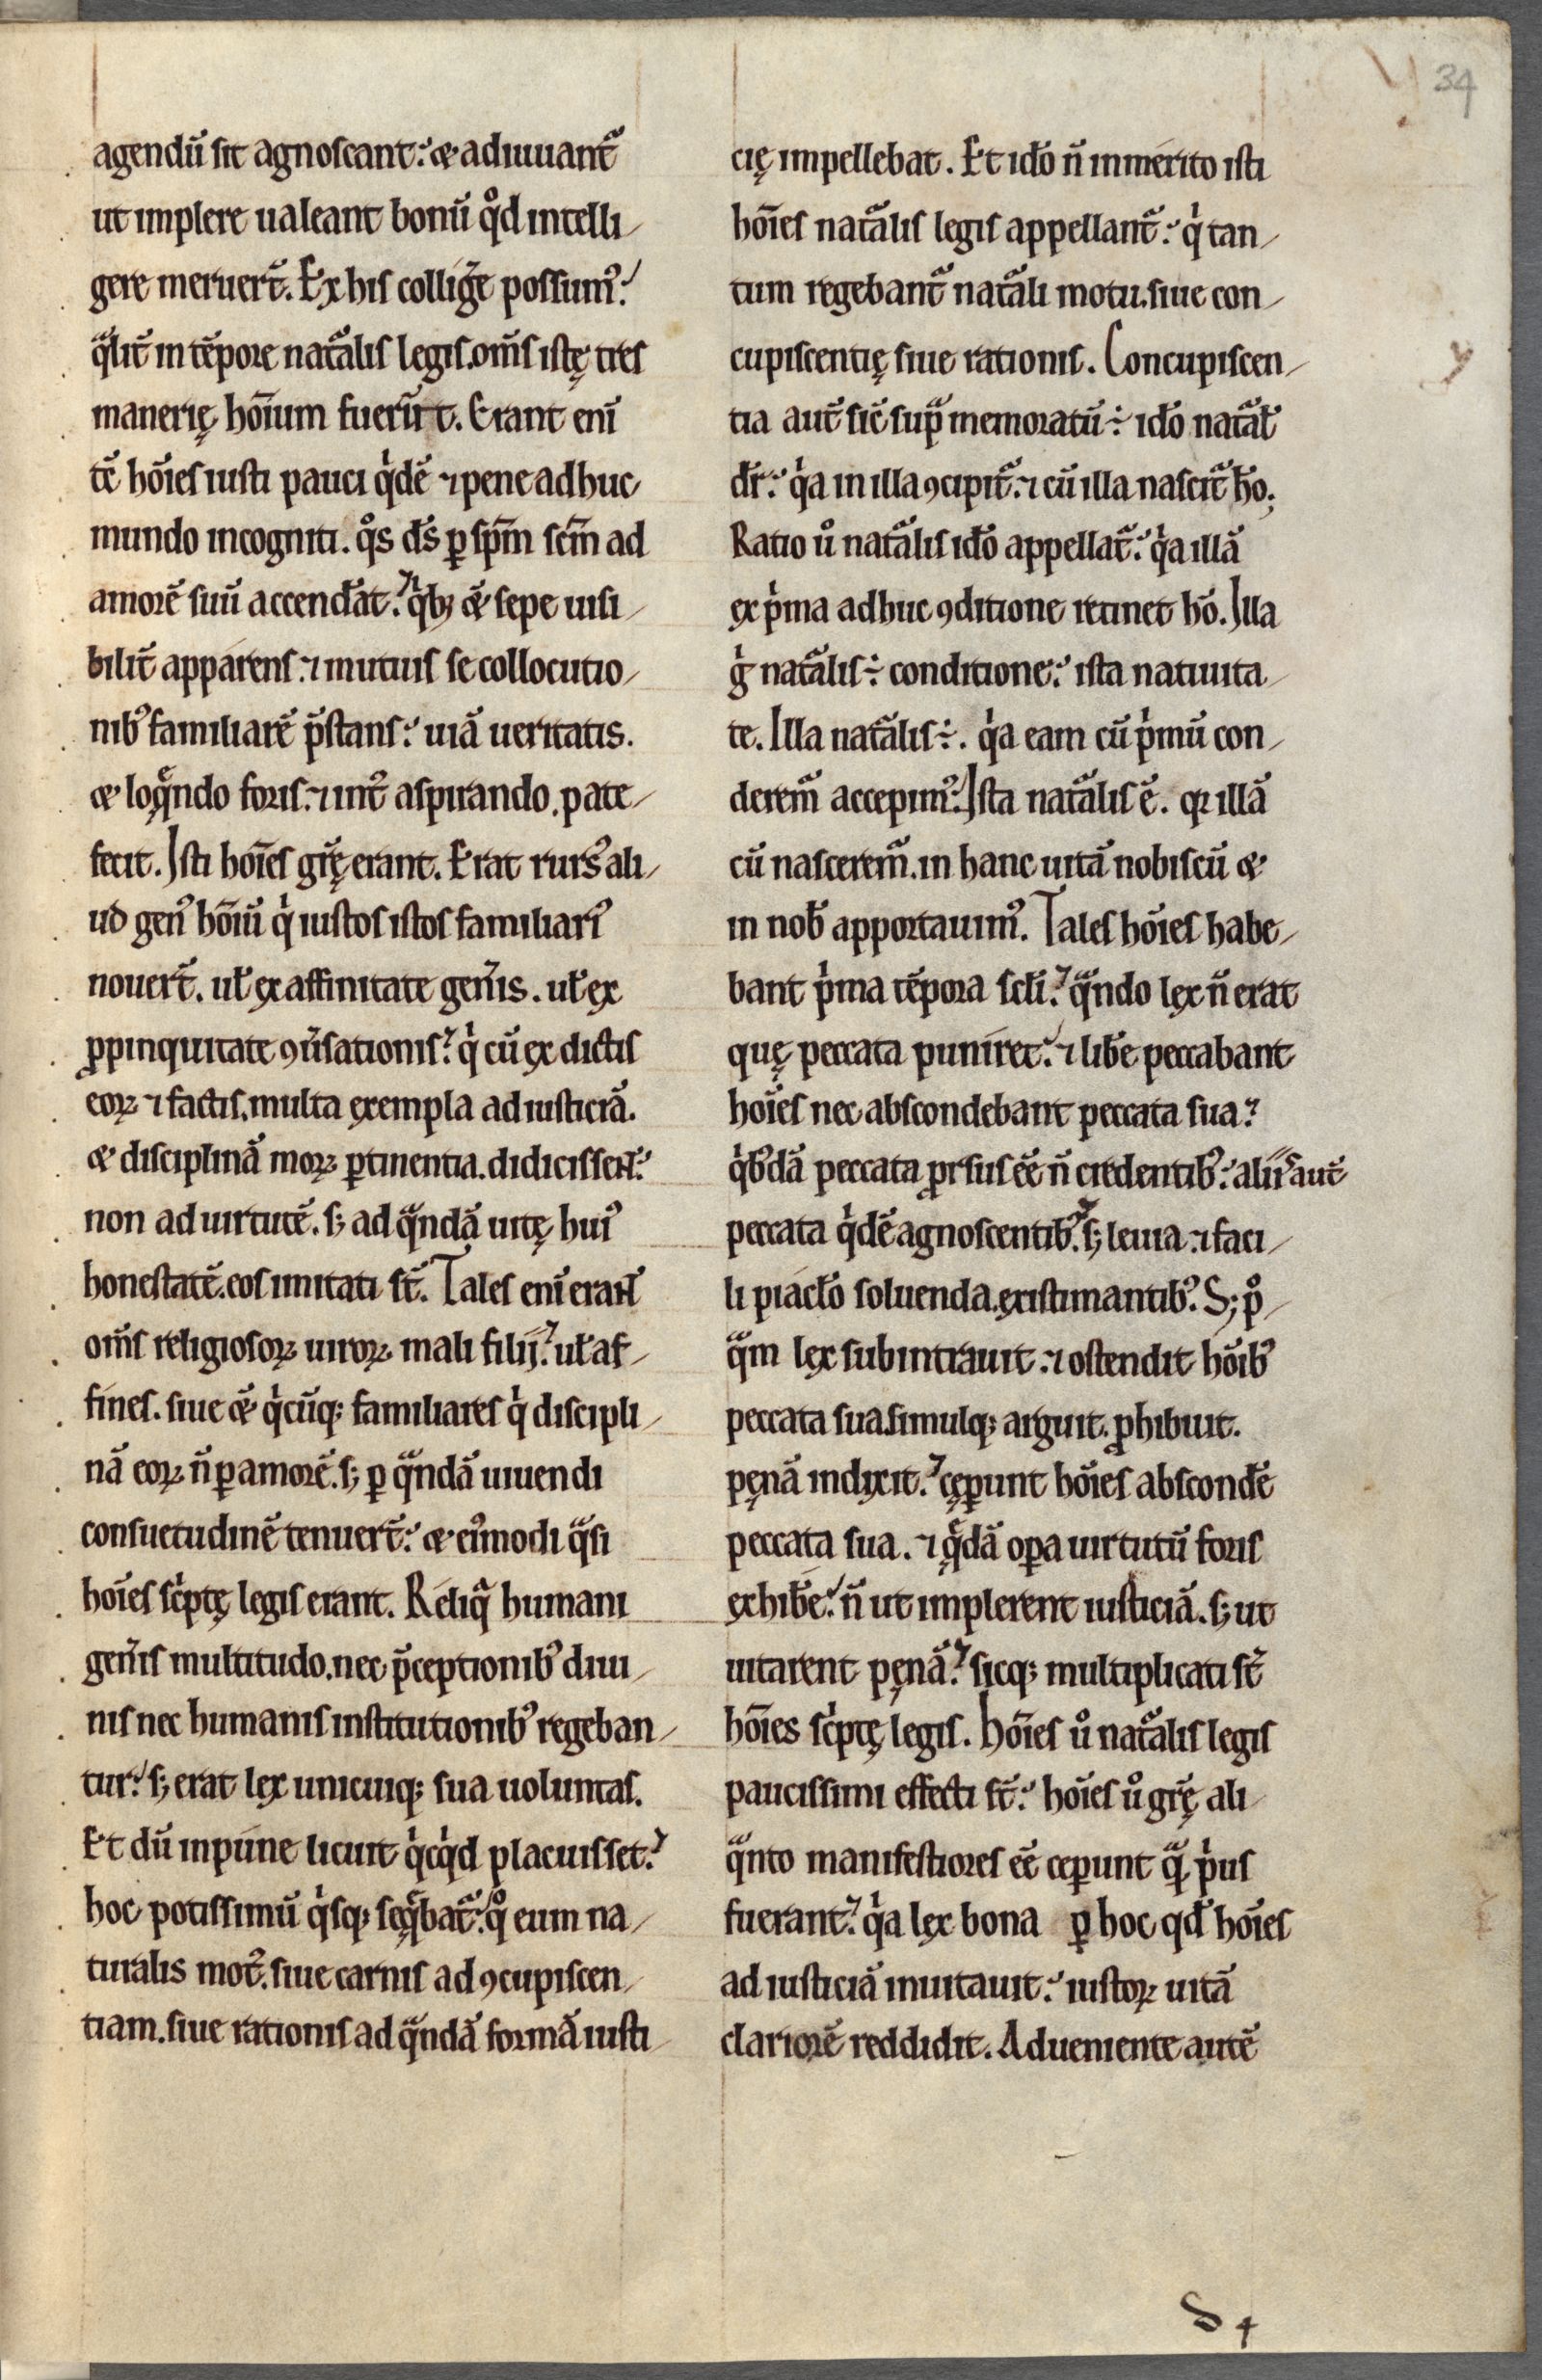 34
agendū sit agnoscant: & adiuuant᷑
ut implere ualeant bonū qͦd intelli-
gere meruer̄t. Ex his collig̃e possumꝰ:
qͣlit̃ in tēpore nat᷑alis legis. om̄s istę tres
manerię hōīum fuerūt. Erant enī
tē hōīes iusti pauci qͥdē ⁊ pene adhuc
mundo incogniti. qͦs ds̄ ꝑ sp̄m sc̄m ad
amorē suū accend̄at: qͥbꝫ &̄ sepe uisi-
bilit̃ apparens. ⁊ mutuis se collocutio-
nibꝰ familiarē p̄stans: uiā ueritatis.
& loq̨ͣndo foris. ⁊ int᷑ aspirando. pate-
fecit. Isti hōīes gr̄ę erant. Erat rursꝰ ali-
ud genꝰ hōīū qͥ iustos istos familiariꝰ
nouer̄t. ul̄ ex affinitate gen̄is. ul̄ ex
ꝓpinquitate ꝯu̅sationis: qͥ cū ex dictis
eoꝝ ⁊ factis. multa exempla ad iusticiā.
& disciplinā moꝝ ꝑtinentia. didicissent:
non ad uirtutē. sꝫ ad qͣndā uitę huiꝰ
honestatē. eos imitati st̄. Tales enī erant
om̄s religiosoꝝ uiroꝝ mali filij: ul̄ af-
fines. siue &̄ qͥcūqꝫ familiares qͥ discipli-
nā eoꝝ n̄ ꝑ amorē. sꝫ ꝑ qͣndā uiuendi
consuetudinē tenuer̄t: & eiꝰmodi qͣsi
hōīes scͥptę legis erant. Reliqͣ humani
gen̄is multitudo. nec p̄ceptionibꝰ diui-
nis nec humanis institutionibꝰ regeban-
tur: sꝫ erat lex unicuiqꝫ sua uoluntas.
Et dū inpune licuit qͥcqͥd placuisset:
hoc potissimū qͥsqꝫ seq̨ͣbat᷑: qͦ eum na-
turalis motꝰ. siue carnis ad ꝯcupiscen-
tiam. siue rationis ad qͣndā formā iusti-
cię impellebat. Et id̄o n̄ inmerito isti
hōīes nat᷑alis legis appellant᷑: qͥ tan-
tum regebant᷑ nat᷑ali motu. siue con-
cupiscentię siue rationis. Concupiscen-
tia aut̄ sic̄ supͣ memoratū ÷ id̄o nat᷑al̄
dr̄: qͥa in illa ꝯcipit᷑. ⁊ cū illa nascit᷑ hō;
Ratio uͦ nat᷑alis id̄o appellat᷑: qͥa illā
ex pͥma adhuc ꝯditione retinet hō. Illa
gͥ nat᷑alis ÷ conditione: ista natiuita-
te. Illa nat᷑alis ÷. qͥa eam cū pͥmū con-
derem᷑ accepimꝰ: Ista nat᷑alis ē. qꝛ illā
cū nascerem᷑. in hanc uitā nobiscū &
in nob̄ apportauimꝰ. Tales hōīes habe-
bant pͥma tēpora scl̄i: qͣndo lex n̄ erat
quę peccata puniret: ⁊ lib̄e peccabant
hōīes nec abscondebant peccata sua:
qͥbꝰdā peccata ꝓrsus eē̄ n̄ credentibꝰ: aliis aut̄
peccata qͥdē agnoscentibꝰ: sꝫ leuia ⁊ faci-
li piacl̄o soluenda. existimantibꝰ. Sꝫ pͦ-
qͣm lex subintrauit. ⁊ ostendit hōībꝰ
peccata sua. simulqꝫ arguit. ꝓhibuit.
pęnā indixit: cęꝑunt hōīes abscond̄e
peccata sua. ⁊ q̨ͣdā oꝑa uirtutū foris
exhib̄e: n̄ ut implerent iusticiā. sꝫ ut
uitarent pęnā: sicqꝫ multiplicati st̄
hōīes scͥptę legis. Hōīes uͦ nat᷑alis legis
paucissimi effecti st̄: hōīes uͦ gr̄ę ali-
qͣnto manifestiores eē̄ ceꝑunt qͣ̄ pͥus
fuerant: qͥa lex bona ꝑ hoc qd̄ hōīes
ad iusticiā inuitauit: iustoꝝ uitā
clariorē reddidit. Adueniente autē